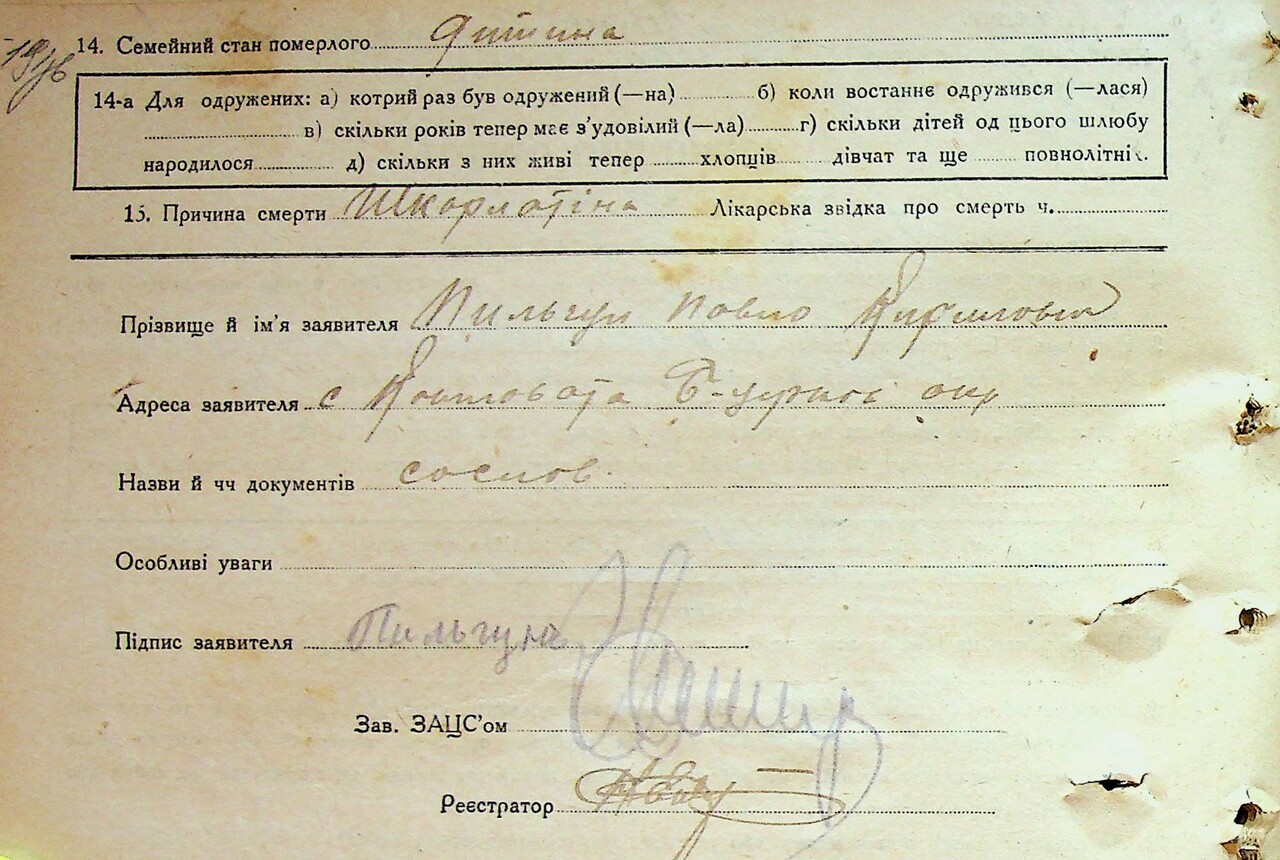 14. Семейний стан померлого Дитина
14-а Для одружених: а) котрий раз був одружений (—на) ........ б) коли востаннє одружився (—лася)
........ в) скільки років тепер має з'удовілий (—ла) ........ г) скільки дітей од цього шлюбу
народилося ........ д) скільки з них живі тепер ........ хлопців ........ дівчат та ще ........ повнолітніх.
15. Причина смерти Шкарлатіна Лікарська звідка про смерть ч. ........
Прізвище й ім'я заявителя Пильгун Павло Кирилович
Адреса заявителя с Ковшовата Б-церків окр
Назви й чч документів
Особливі уваги
Підпис заявителя Пильгуна
Зав. ЗАЦС'ом
Реєстратор